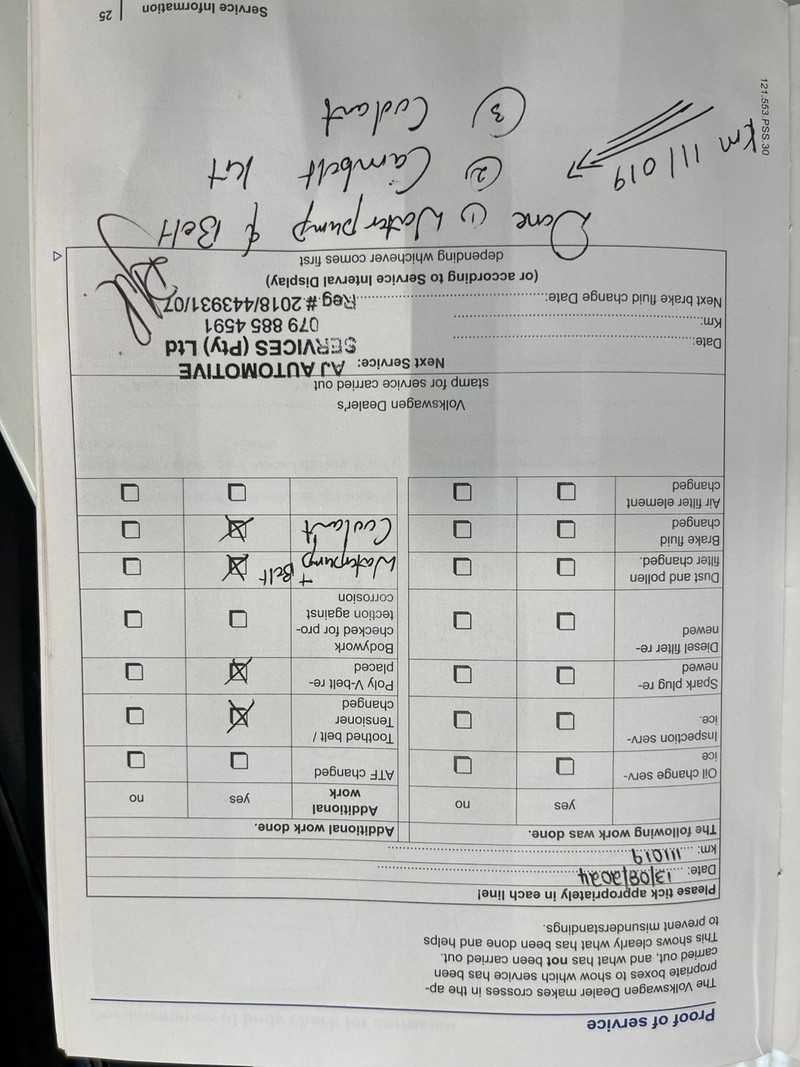 Proof of service
The Volkswagen Dealer makes crosses in the ap-
propriate boxes to show which service has been
carried out, and what has not been carried out.
This shows clearly what has been done and helps
to prevent misunderstandings.
Please tick appropriately in each line!
Date: 13/08/2024
km: 111019
The following work was done.
yes no
Oil change serv-
ice
Inspection serv-
ice.
Spark plug re-
newed
Diesel filter re-
newed
Dust and pollen
filter changed.
Brake fluid
changed
Air filter element
changed
Additional work done.
Additional
work
yes no
ATF changed
Toothed belt /
Tensioner
changed
Poly V-belt re-
placed
Bodywork
checked for pro-
tection against
corrosion
Waterpump
+ Belt
Coolant
Volkswagen Dealer's
stamp for service carried out
Next Service:
AJ AUTOMOTIVE
SERVICES (Pty) Ltd
079 885 4591
Reg # 2018/443931/07
Date:
Km:
Next brake fluid change Date:
(or according to Service Interval Display)
depending whichever comes first
Done ① Waterpump & Belt
② Cambelt kit
③ Coolant
Km 111 019
121.553.PSS.30
Service Information 25